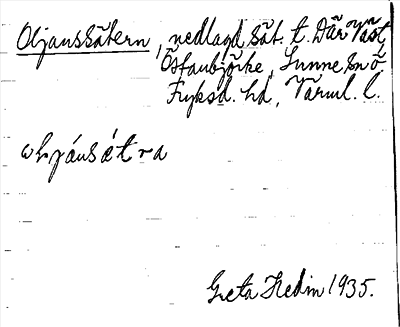 Oljanssätern, nedlagd sät. t. Där Väst,
Östanbjörke, Sunne sn ö,
Fryksd. hd, Värml. l.
Greta Hedin 1935.